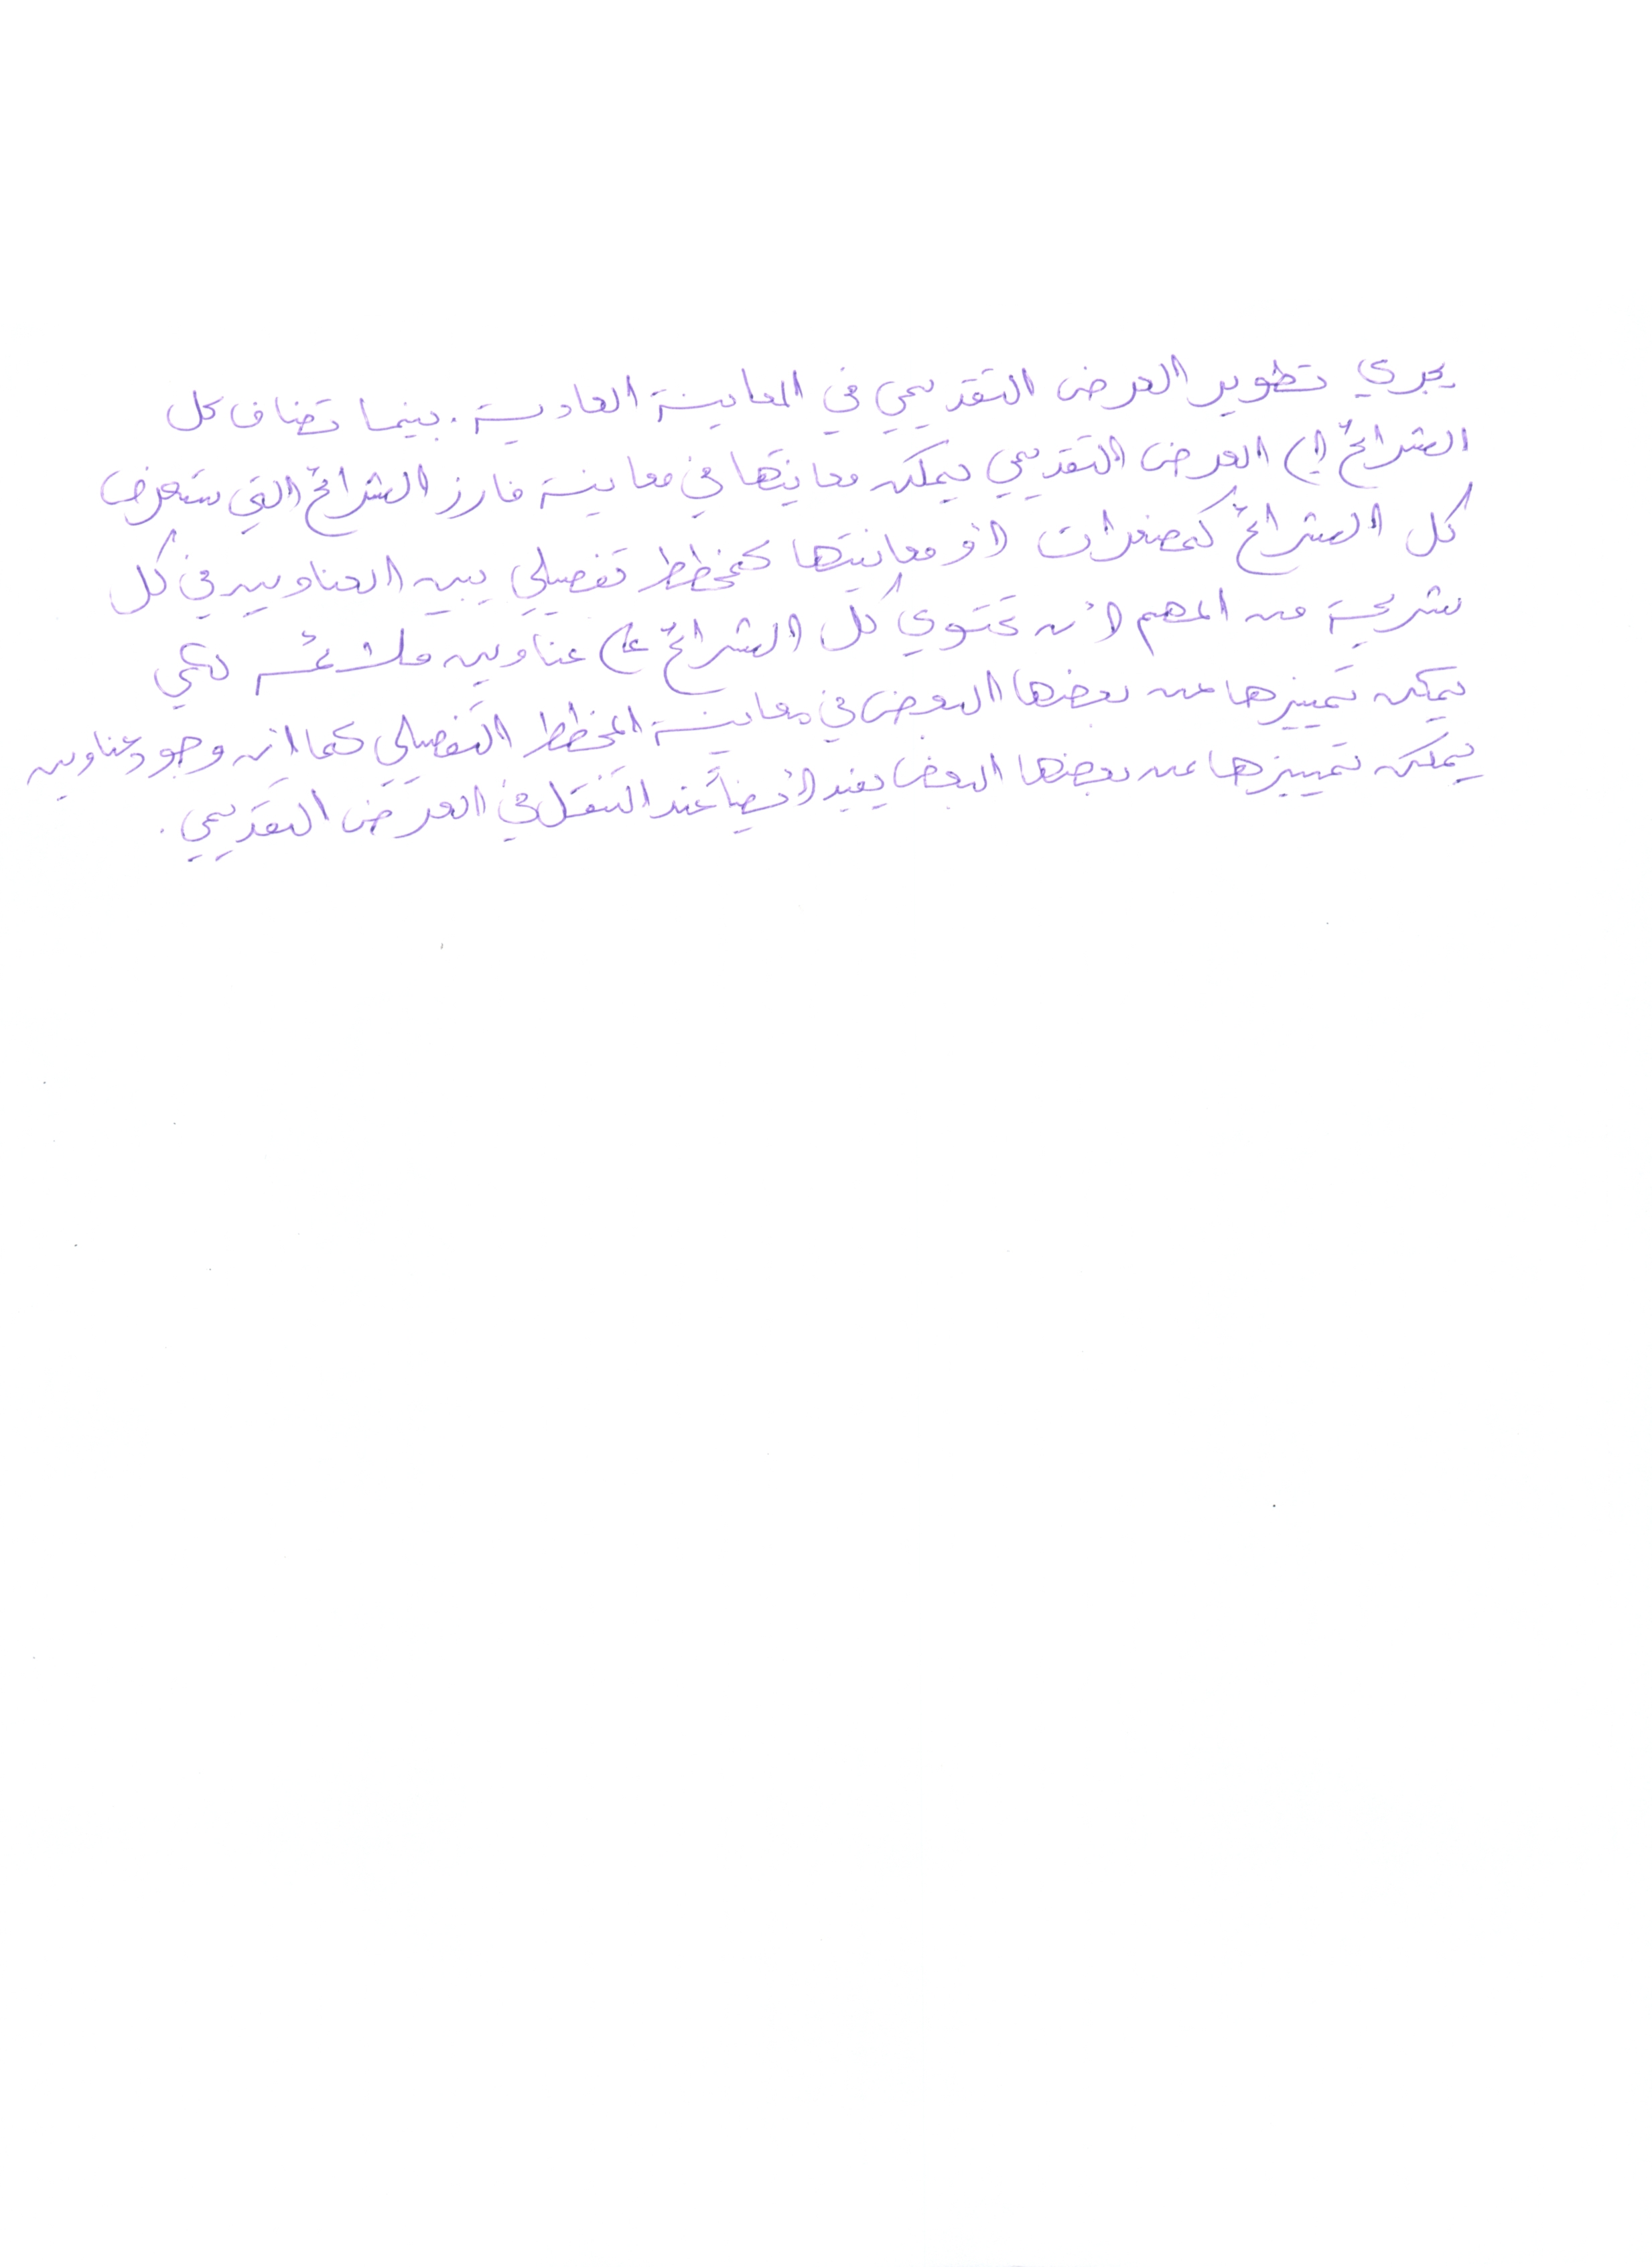 يجري تطوير العرض التقديمي في المعاينة العادية. بينما تضاف كل
الشرائح إلى العرض التقديمي يمكن معاينتها في معاينة فارز الشرائح التي ستعرض
كل الشرائح كمصغرات أو معاينتها كمخطط تفصيلي يبين العناوين في كل
شريحة من المهم أن تحتوي كل الشرائح على عناوين ملائمة لكي
يمكن تمييزها عن بعضها البعض في معاينة المخطط التفصيلي كما أن وجود عناوين
يمكن تمييزها عن بعضها البعض يفيد أيضاً عند التنقل في العرض التقديمي.